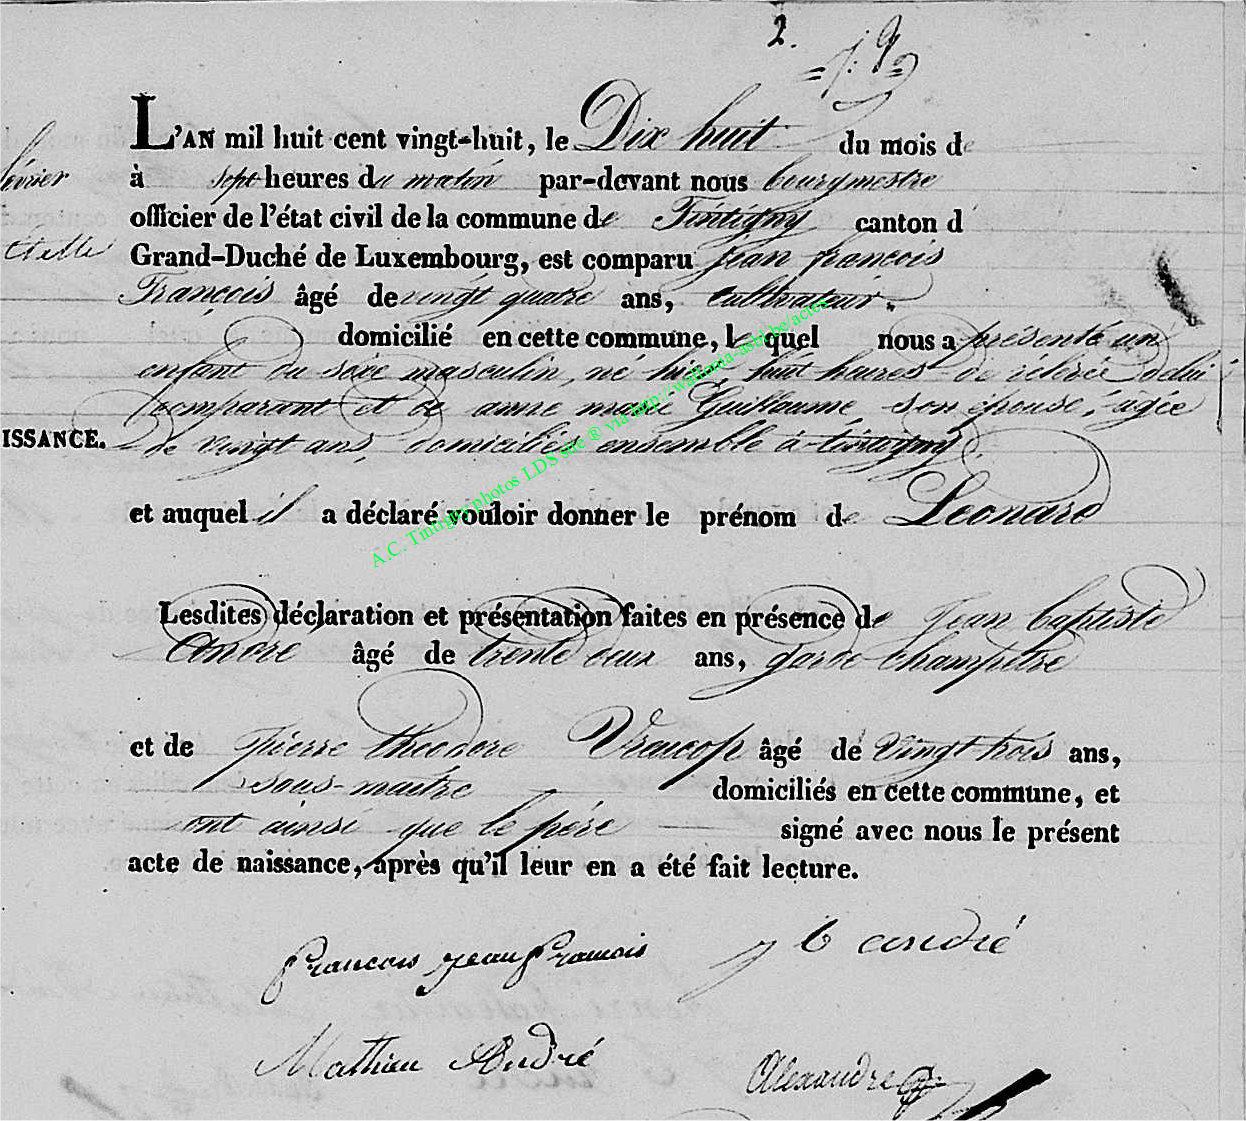 2.
L'AN mil huit cent vingt-huit, le Dix huit du mois de
février
à sept heures du matin par-devant nous bourgmestre
officier de l'état civil de la commune de Tintigny canton d
Etalle
Grand-Duché de Luxembourg, est comparu Jean françois
François âgé de vingt quatre ans, Cultivateur
domicilié en cette commune, le quel nous a présenté un
enfant du sèxe masculin, né hier, huit heures de rélévée de lui
comparant et de anne marie Guillaume son épouse, agée
ISSANCE.
de vingt ans, domiciliés ensemble à tintigny
et auquel il a déclaré vouloir donner le prénom de Leonard
Lesdites déclaration et présentation faites en présence de Jean baptiste
André âgé de trente deux ans, garde champêtre
et de pierre théodore âgé de vingt trois ans,
sous-maitre domiciliés en cette commune, et
ont ainsi que le père signé avec nous le présent
acte de naissance, après qu'il leur en a été fait lecture.
francois jean francois j b andré
Mathieu André Alexandre
A.C. Tintigny photos LDS site ® via http://wallonia-asbl.be/actes